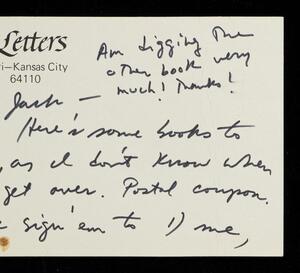 Letters
ri—Kansas City
64110
Am digging the
other book very
much! Thanks!
Jack —
Here's some books to
, as I don't know when
get over. Postal coupon.
e sign 'em to 1) me,